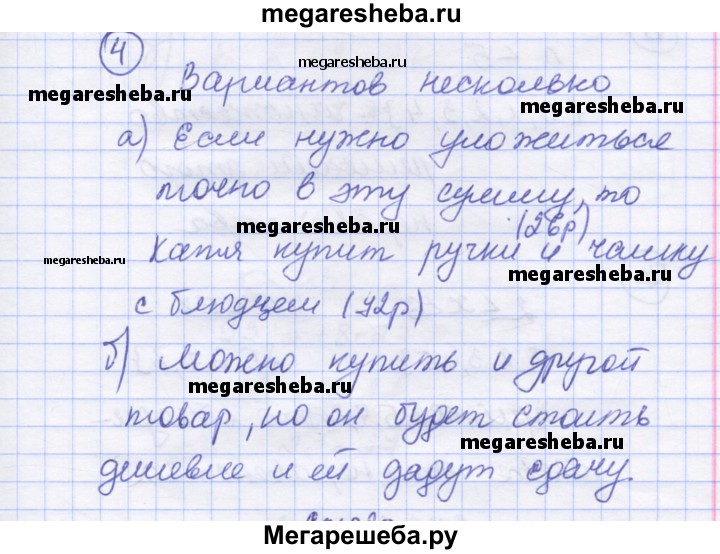 megaresheba.ru
4
megaresheba.ru
Вариантов несколько
megaresheba.ru
megaresheba.ru
а) Если нужно уложиться
точно в эту сумму, то
megaresheba.ru
(28р)
Катя купит ручки и чашку
megaresheba.ru
megaresheba.ru
с блюдцем (72р)
б) можно купить и другой
megaresheba.ru
товар, но он будет стоить
megaresheba.ru
дешевле и ей дадут сдачу.
Мегарешеба.ру